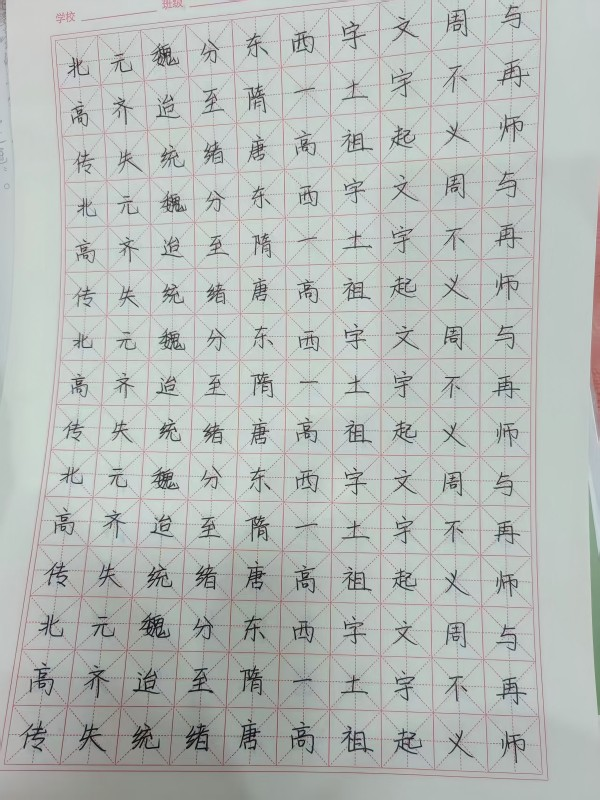 学校 班级
北元魏分东西字文周与
高齐迨至隋一土宇不再
传失统绪唐高祖起义师
北元魏分东西字文周与
高齐迨至隋一土宇不再
传失统绪唐高祖起义师
北元魏分东西字文周与
高齐迨至隋一土宇不再
传失统绪唐高祖起义师
北元魏分东西字文周与
高齐迨至隋一土宇不再
传失统绪唐高祖起义师
北元魏分东西字文周与
高齐迨至隋一土宇不再
传失统绪唐高祖起义师